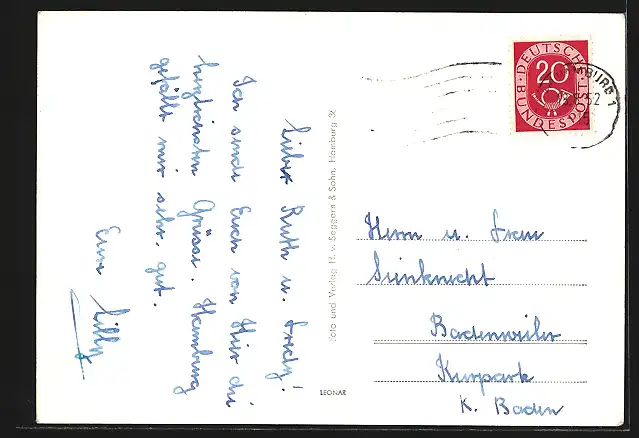 Liebe Ruth u. Fredy!
Ich sende Euch von Hier die
herzlichsten Grüsse. Hamburg
gefällt mir sehr gut.
Eure Lilly
Foto und Verlag H. v. Seggern & Sohn, Hamburg
LEONAR
DEUTSCHE
20
BUNDESPOST
52
Herrn u. Frau
Badenweiler
Kurpark
K. Baden